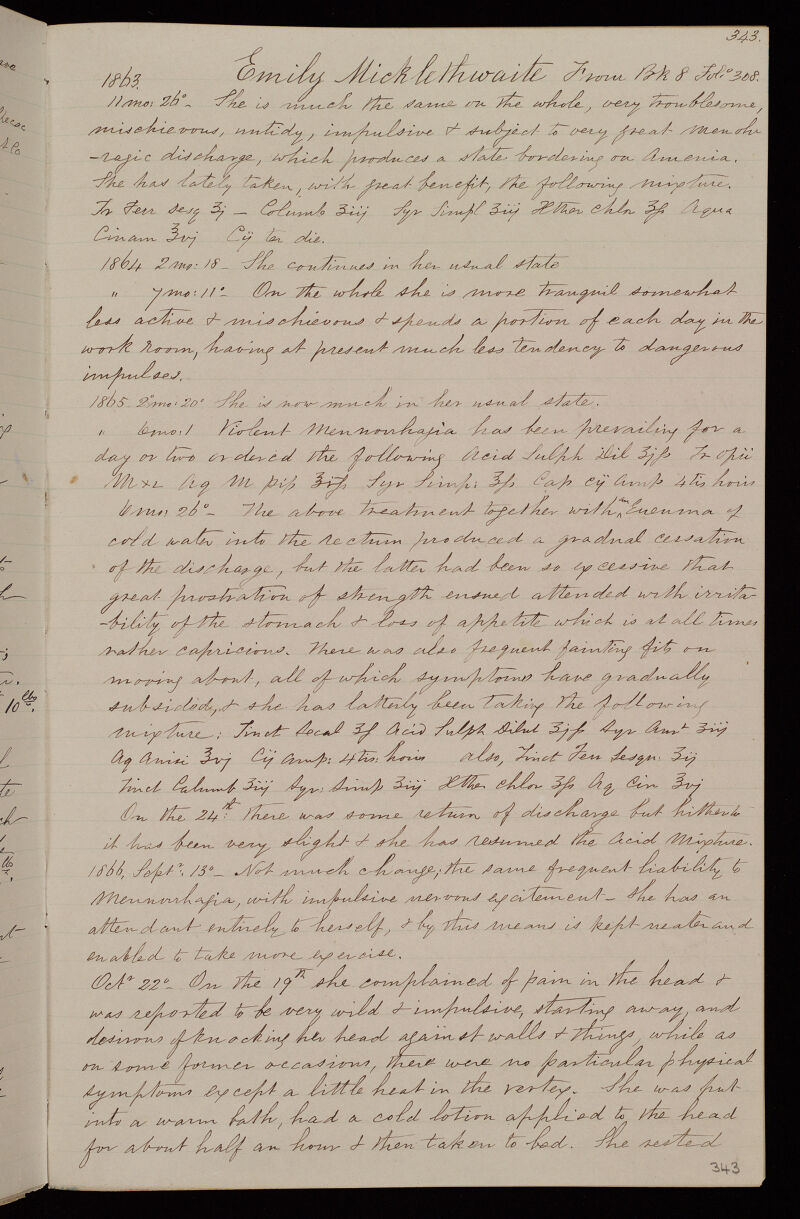 343.
Emily Micklethwaite From Bk 8 Folo 308.
1863.
11 mo: 26o - She is much the same on the whole, very troublesome,
mischievous, untidy, impulsive & subject to very great menorh
-ragic discharge, which produces a state bordering on Amenia.
She has lately taken, with great benefit, the following mixture.
Tr Ferr Sesq ʒj - Columb ʒiij Syr Simpl ʒiij Æther Chlor ʒſs Aqua
Cinam ℥vj Cij ter die.
1864 2 mo: 18 - She continues in her usual state
" 7 mo: 11o - On the whole she is more tranquil somewhat
less active & mischievous & spends a portion of each day in the
work room, having at present much less tendency to dangerous
impulses.
1865. 2o mo: 20o She is now much in her usual state.
" 6 mo: 1 Violent Mennorrhagia has been prevailing for a
day or two ordered the following Acid Sulph Dil ʒjſs Tr opii
Aq M Pip Syr Simp: ʒſs Cap cij Amp 4tis horis
6 mo: 26o - The above treatment together with an Enenma of
cold water into the rectum produced a gradual cessation
of the discharge, but the latter had been so excessive that
great prostration of strength ensued attended with irrita-
-bility of the stomach & loss of appetite which is at all times
rather capricious. There was also frequent fainting fits on
moving about, all of which symptoms have gradually
subsided, & she has latterly been taking the following
mixture: Tinct Secal Acid Sulph Dilut ʒjſs Syr Aurt ʒiij
Aq Anisi ℥vj Cij Amp: 4tis: horis also, Tinct Ferr Sesqu: ʒij
Tinct Calumb ʒiij Syr: Simp ʒiij Æther chlor ʒſs Aq Cin ℥vj
On the 24th there was some return of discharge but hitherto
it has been very slight & she has resumed the Acid Mixture.
1866, Septr. 13o - Not much change; the same frequent liability to
Mennorrhagia, with impulsive nervous excitement - She has an
attendant entirely to herself, & by this means is kept neater and
enabled to take more exercise.
Octr 22o - On the 19th she complained of pain in the head &
was reported to be very wild & impulsive, starting away, and
desirous of knocking her head against walls & things, while as
on some former occasions, there were no particular physical
symptoms except a little heat in the vertex. She was put
into a warm bath, had a cold lotion applied to the head
for about half an hour & then taken to bed. She rested
343
10 lbs.